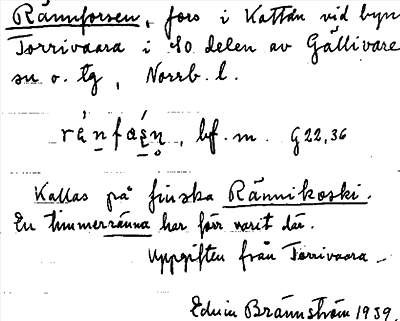 Rännforsen, fors i Kattån vid byn
Torrivaara i SO. delen av Gällivare
sn o. tg, Norrb. l.
bf. m. G22,36
Kallas på finska Rännikoski.
En timmerränna har förr varit där.
Uppgiften från Torrivaara –
Edvin Brännström 1939.